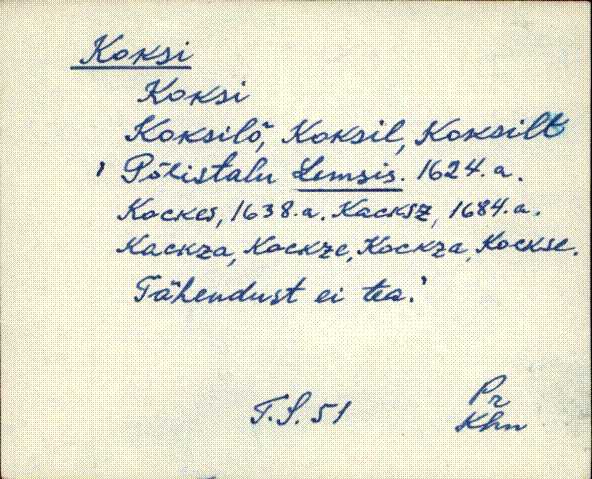 Koksi
Koksi
Koksilȭ, Koksil, Koksilt
' Põlistalu Lemsis. 1624.a.
Kockes, 1638.a. Kacksz, 1684.a.
Kackza, Kockze, Kockza, Kockse.
Tähendust ei tea.'
T.S. 51
Pr
Khn